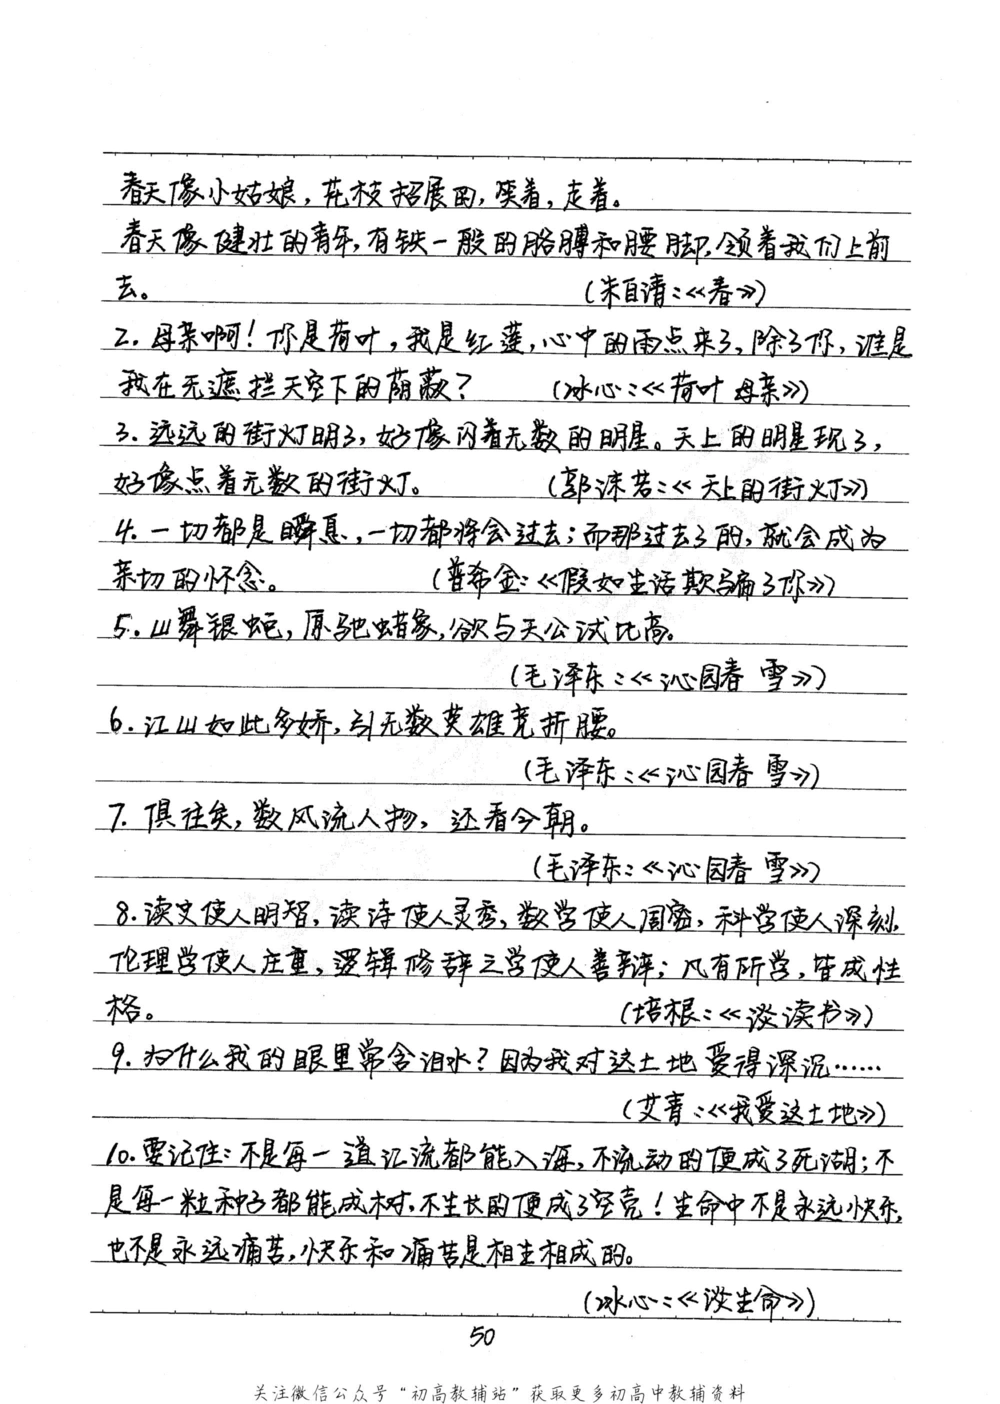 春天像小姑娘，花枝招展的，笑着，走着。
春天像健壮的青年，有铁一般的胳膊和腰脚，领着我们上前
去。 （朱自清：《春》）
2. 母亲啊！你是荷叶，我是红莲，心中的雨点来了，除了你，谁是
我在无遮拦天空下的荫蔽？ （冰心：《荷叶 母亲》）
3. 远远的街灯明了，好像闪着无数的明星。天上的明星现了，
好像点着无数的街灯。 （郭沫若：《天上的街灯》）
4. 一切都是瞬息，一切都将会过去；而那过去了的，就会成为
亲切的怀念。 （普希金：《假如生活欺骗了你》）
5. 山舞银蛇，原驰蜡象，欲与天公试比高。
（毛泽东：《沁园春 雪》）
6. 江山如此多娇，引无数英雄竞折腰。
（毛泽东：《沁园春 雪》）
7. 俱往矣，数风流人物，还看今朝。
（毛泽东：《沁园春 雪》）
8. 读史使人明智，读诗使人灵秀，数学使人周密，科学使人深刻，
伦理学使人庄重，逻辑修辞之学使人善辩；凡有所学，皆成性
格。 （培根：《谈读书》）
9. 为什么我的眼里常含泪水？因为我对这土地爱得深沉……
（艾青：《我爱这土地》）
10. 要记住：不是每一道江流都能入海，不流动的便成了死湖；不
是每一粒种子都能成树，不生长的便成了空壳！生命中不是永远快乐，
也不是永远痛苦，快乐和痛苦是相生相成的。
（冰心：《谈生命》）
50
关注微信公众号“初高教辅站”获取更多初高中教辅资料